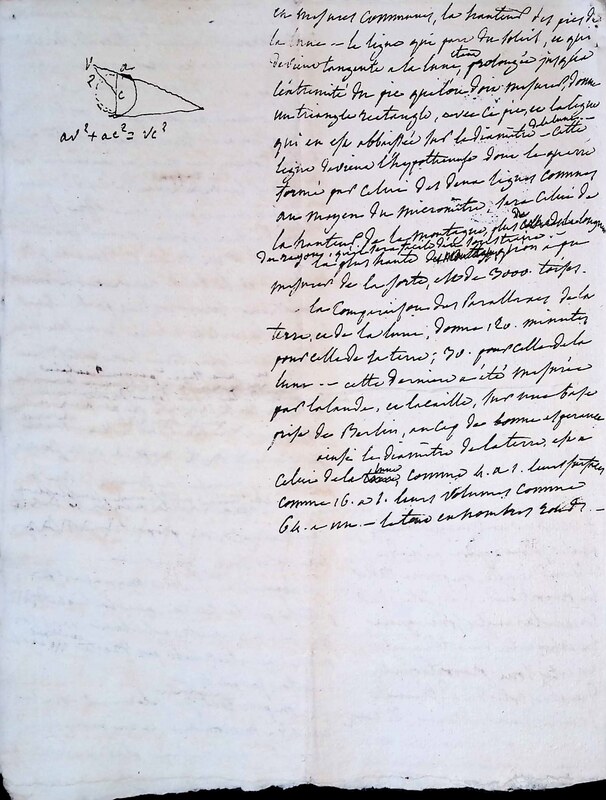 en mesures communes, la hauteur des pics de
la lune – la ligne qui part du soleil, et qui
devient tangente a la lune, etant prolongée jusqu'a
l'extremité du pic que l'on doit mesurer, donne
un triangle rectangle, avec ce pic, et la ligne
qui en est abbaissée sur le diametre de la lune – cette
ligne devient l'hypothenuse dont le quarré
formé par celui des deux lignes connues
au moyen du micrometre, sera celui de
la hauteur de la montagne, plus de la longueur
du rayon, qu'il sera facile de
la plus haute qu'on a pu
mesurer de la sorte, est de 3000 toises.
la Comparaison des Parallaxes de la
terre, et de la lune, donne 120. minutes
pour celle de la terre; 30. pour celle de la
lune – – cette derniere a été mesurée
par lalande, et lacaille, sur une base
prise de Berlin, au cap de bonne esperance
ainsi le diametre de la terre, est a
celui de la lune, comme 4. a 1. leurs surfaces
comme 16. a 1. leurs volumes comme
64. a un. – le tout en nombres ronds. –
V a
2
c
av² + ac² = vc²